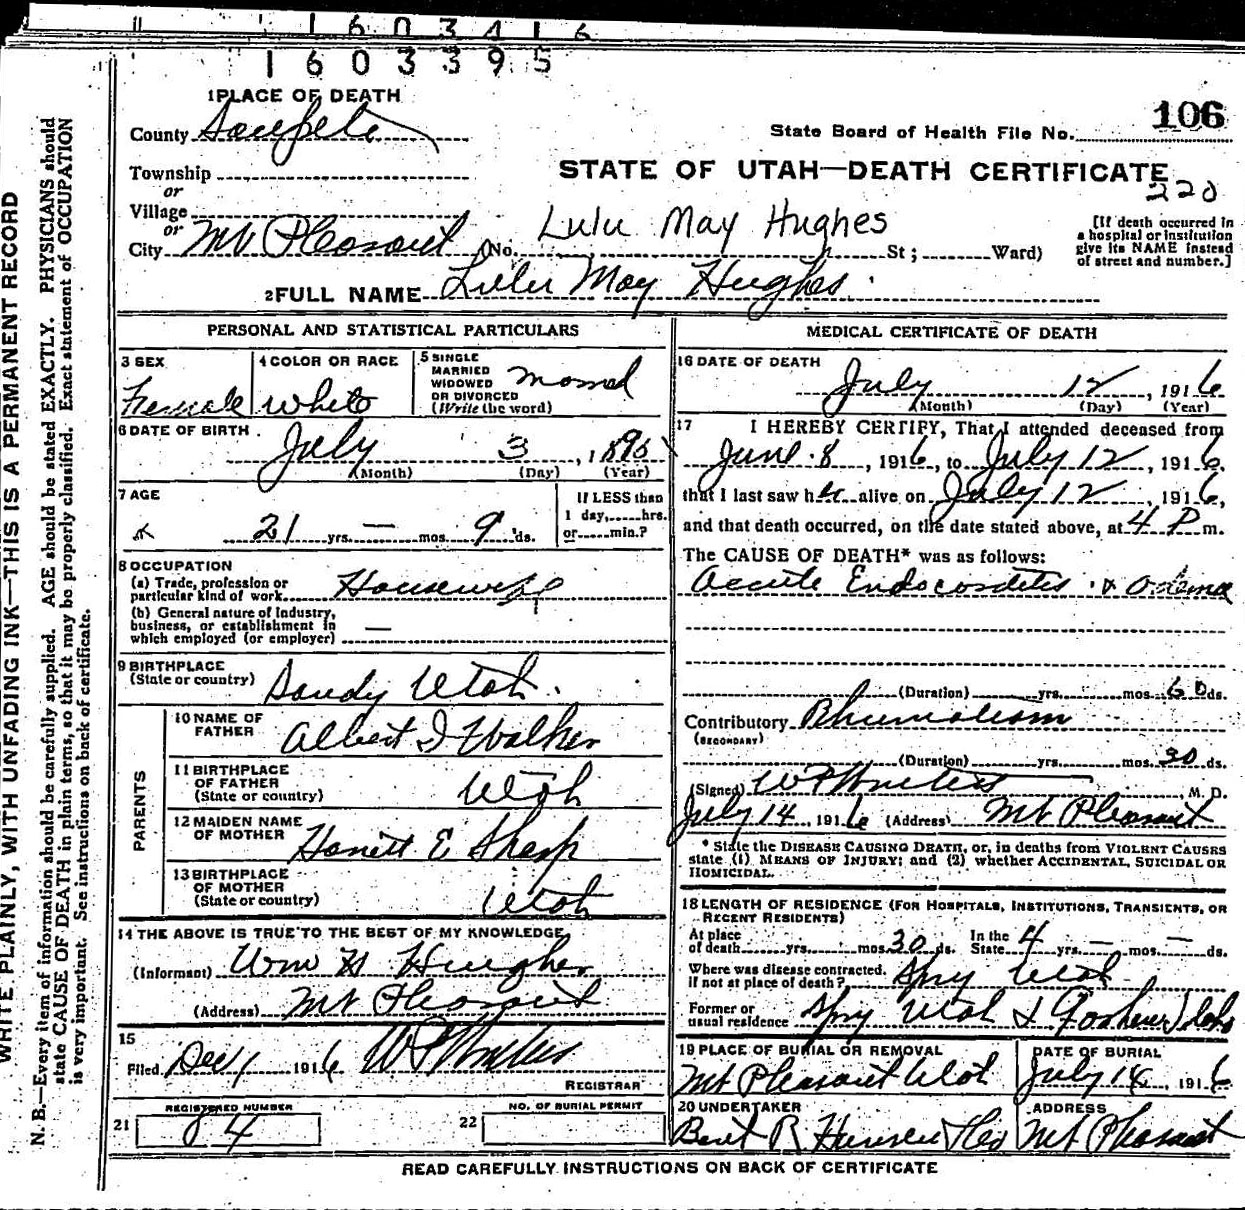 1603416
1603395
1 PLACE OF DEATH
106
County Sanpete
State Board of Health File No.
Township
STATE OF UTAH—DEATH CERTIFICATE
or
220
Village
Lulu May Hughes
or
City Mt Pleasant (No. St; Ward)
[If death occurred in
a hospital or institution
give its NAME instead
of street and number.]
2 FULL NAME Lulu May Hughes
PERSONAL AND STATISTICAL PARTICULARS
3 SEX
Female
4 COLOR OR RACE
White
5 SINGLE
MARRIED
WIDOWED
OR DIVORCED
(Write the word)
6 DATE OF BIRTH
July 3, 1895
(Month) (Day) (Year)
7 AGE
21 yrs. — mos. 9 ds.
If LESS than
1 day, hrs.
or min.?
8 OCCUPATION
(a) Trade, profession or
particular kind of work Housewife
(b) General nature of industry,
business, or establishment in
which employed (or employer) —
9 BIRTHPLACE
(State or country) Sandy Utah.
PARENTS
10 NAME OF
FATHER Albert I Walker
11 BIRTHPLACE
OF FATHER
(State or country) Utah
12 MAIDEN NAME
OF MOTHER Harriett E Sharp
13 BIRTHPLACE
OF MOTHER
(State or country) Utah
14 THE ABOVE IS TRUE TO THE BEST OF MY KNOWLEDGE
(Informant) Wm H Hughes
(Address) Mt Pleasant
15
Filed Dec 1 1916
REGISTRAR
REGISTERED NUMBER
21 84
NO. OF BURIAL PERMIT
22
MEDICAL CERTIFICATE OF DEATH
16 DATE OF DEATH
July 12, 1916
(Month) (Day) (Year)
17 I HEREBY CERTIFY, That I attended deceased from
June 8, 1916, to July 12, 1916,
that I last saw her alive on July 12, 1916,
and that death occurred, on the date stated above, at 4 P m.
The CAUSE OF DEATH* was as follows:
Accute Endocarditis & Odema
(Duration) yrs. mos. 60 ds.
Contributory Rhumatism
(SECONDARY)
(Duration) yrs. mos. 30 ds.
(Signed) M. D.
July 14, 1916 (Address) Mt Pleasant
* State the DISEASE CAUSING DEATH, or, in deaths from VIOLENT CAUSES
state (1) MEANS OF INJURY; and (2) whether ACCIDENTAL, SUICIDAL OR
HOMICIDAL.
18 LENGTH OF RESIDENCE (FOR HOSPITALS, INSTITUTIONS, TRANSIENTS, OR
RECENT RESIDENTS)
At place
of death yrs. mos. 30 ds.
In the
State 4 yrs. — mos. — ds.
Where was disease contracted,
if not at place of death? Spry Utah
Former or
usual residence Spry Utah & Idaho
19 PLACE OF BURIAL OR REMOVAL
Mt Pleasant Utah
DATE OF BURIAL
July 14, 1916
20 UNDERTAKER
ADDRESS
Mt Pleasant
READ CAREFULLY INSTRUCTIONS ON BACK OF CERTIFICATE
WRITE PLAINLY, WITH UNFADING INK—THIS IS A PERMANENT RECORD
N. B.—Every item of information should be carefully supplied. AGE should be stated EXACTLY. PHYSICIANS should
state CAUSE OF DEATH in plain terms, so that it may be properly classified. Exact statement of OCCUPATION
is very important. See instructions on back of certificate.